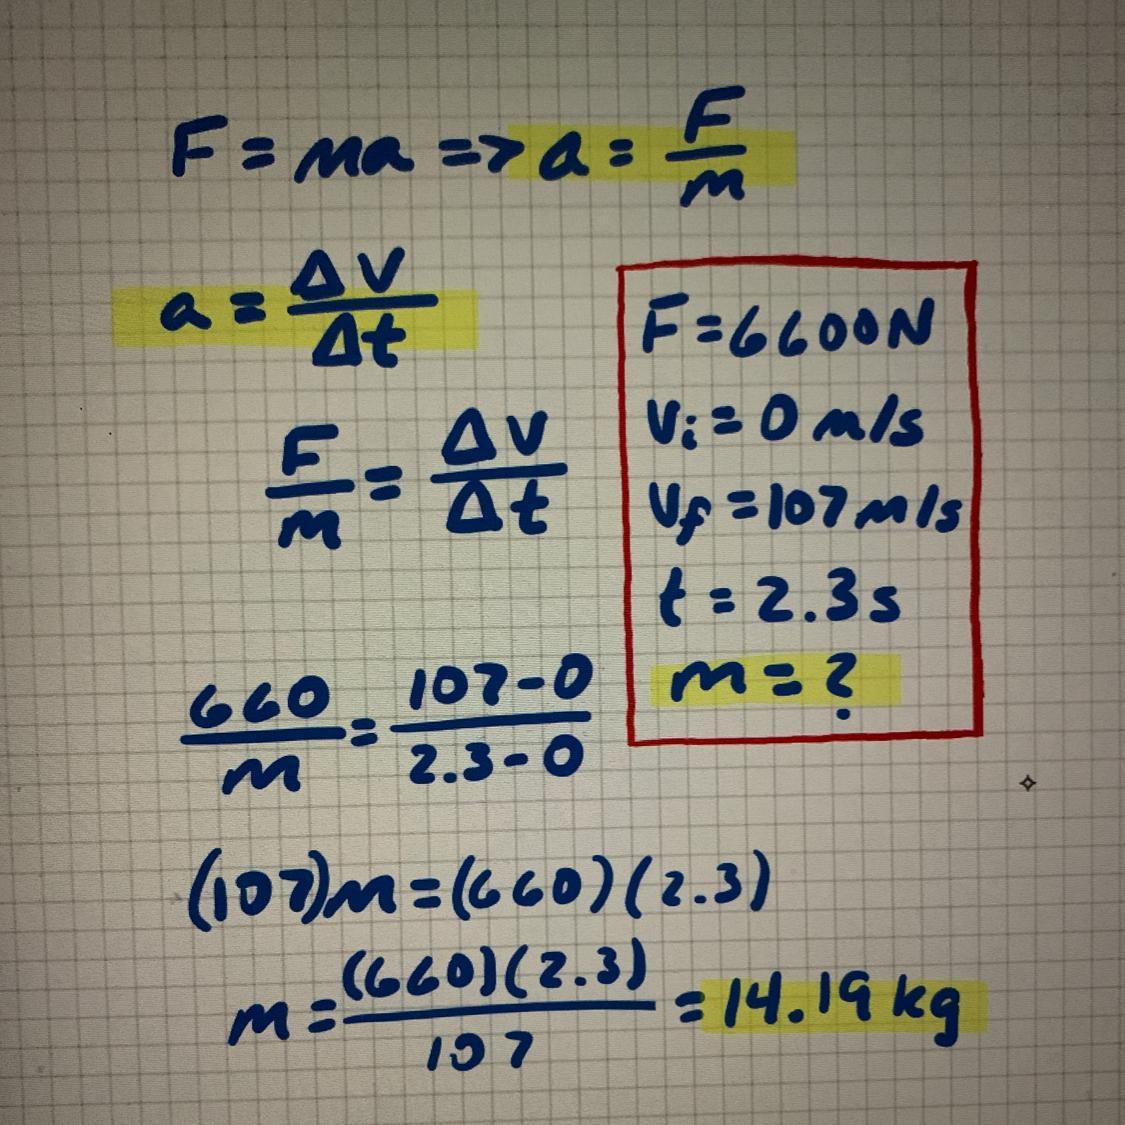 F = ma => a = F/m
a = ΔV/Δt
F/m = ΔV/Δt
F = 6600N
Vi = 0 m/s
Vf = 107 m/s
t = 2.3 s
m = ?
660/m = 107-0/2.3-0
(107)m = (660)(2.3)
m = (660)(2.3)/107 = 14.19 kg